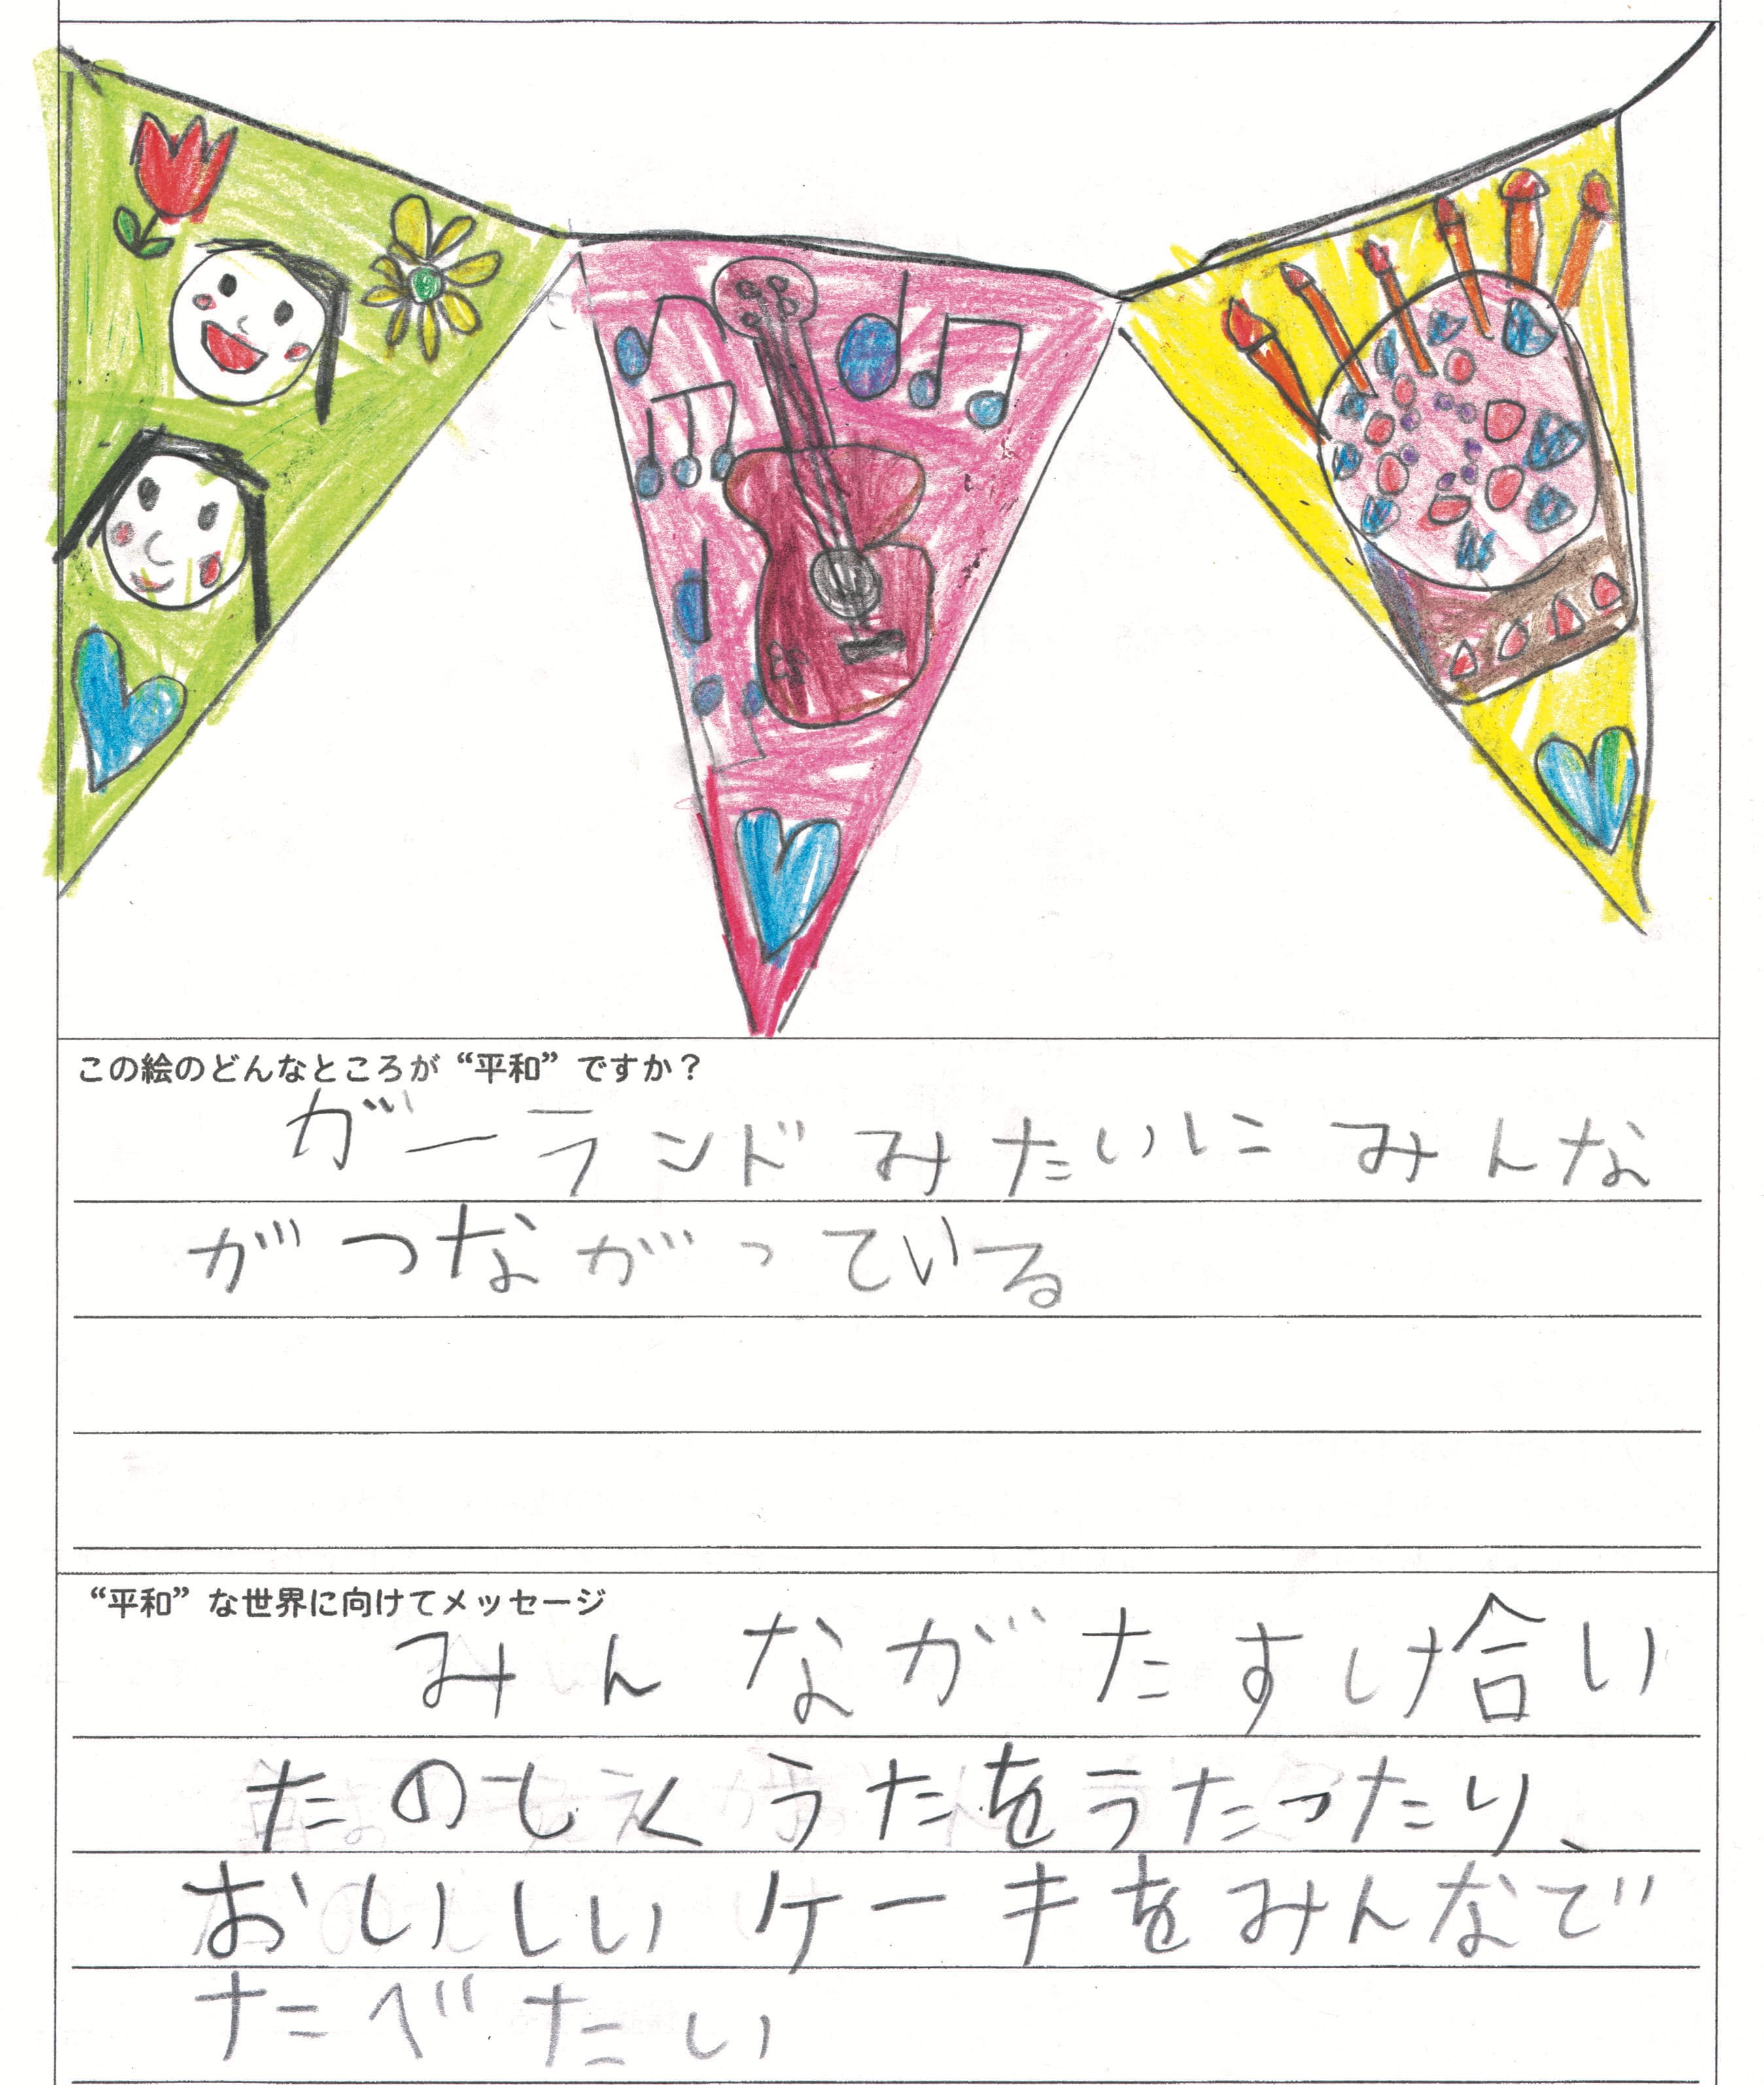 この絵のどんなところが“平和”ですか？
ガーランドみたいにみんな
がつながっている
“平和”な世界に向けてメッセージ
みんながたすけ合い
たのしくうたをうたったり、
おいしいケーキをみんなで
たべたい